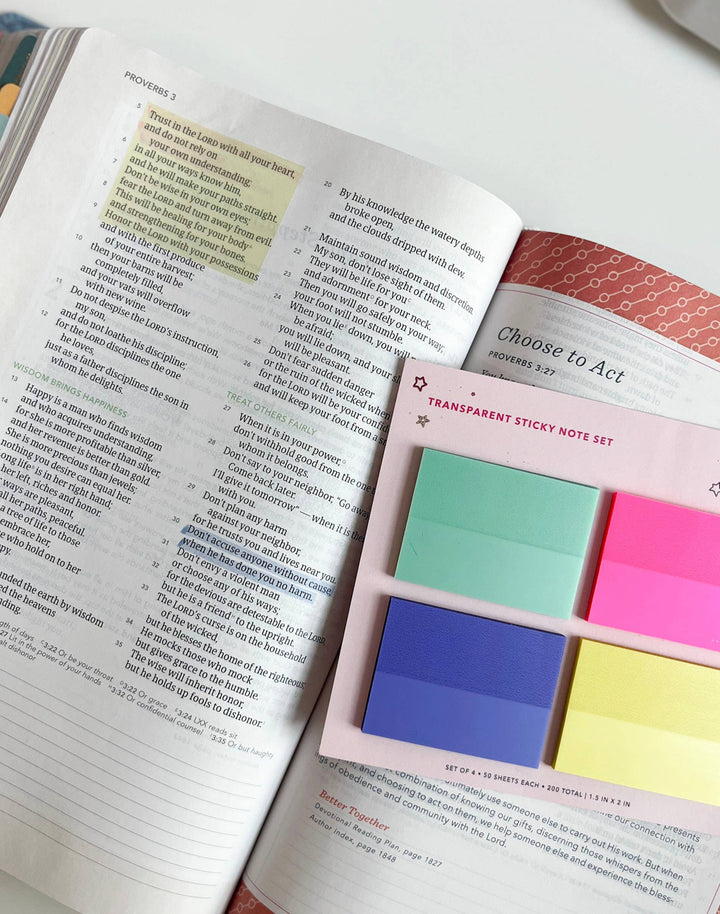 PROVERBS 3
5 Trust in the LORD with all your heart,
and do not rely on
your own understanding;
6 in all your ways know him,
and he will make your paths straight.
7 Don't be wise in your own eyes;
fear the LORD and turn away from evil.
8 This will be healing for your body
and strengthening for your bones.
9 Honor the LORD with your possessions
and with the first produce
of your entire harvest;
10 then your barns will be
completely filled,
and your vats will overflow
with new wine.
11 Do not despise the LORD's instruction,
my son,
and do not loathe his discipline;
12 for the LORD disciplines the one
he loves,
just as a father disciplines the son in
whom he delights.
WISDOM BRINGS HAPPINESS
13 Happy is a man who finds wisdom
and who acquires understanding,
14 for she is more profitable than silver,
and her revenue is better than gold.
She is more precious than jewels;
nothing you desire can equal her.
long life is in her right hand;
her left, riches and honor.
ways are pleasant,
all her paths, peaceful.
a tree of life to those
embrace her,
who hold on to her
founded the earth by wisdom
the heavens
20 By his knowledge the watery depths
broke open,
and the clouds dripped with dew.
21 Maintain sound wisdom and discretion.
My son, don't lose sight of them.
22 They will be life for you
and adornment for your neck.
23 Then you will go safely on your way;
your foot will not stumble.
24 When you lie down, you will
be afraid;
you will lie down, and your
will be pleasant.
25 Don't fear sudden danger
or the ruin of the wicked when
26 for the LORD will be your
and will keep your foot from a
TREAT OTHERS FAIRLY
27 When it is in your power,
don't withhold good from the one
whom it belongs.
28 Don't say to your neighbor, "Go away
Come back later.
I'll give it tomorrow" — when it is
with you.
29 Don't plan any harm
against your neighbor,
for he trusts you and lives near you.
30 Don't accuse anyone without cause,
when he has done you no harm.
31 Don't envy a violent man
or choose any of his ways;
32 for the devious are detestable to the LORD,
but he is a friend to the upright.
33 The LORD's curse is on the household
of the wicked,
but he blesses the home of the righteous;
34 He mocks those who mock
but gives grace to the humble.
35 The wise will inherit honor,
but he holds up fools to dishonor.
length of days 3:22 Or be your throat 3:22 Or grace 3:24 LXX reads sit
3:27 Lit in the power of your hands 3:32 Or confidential counsel 3:35 Or but haughty
dishonor
Choose to Act
PROVERBS 3:27
TRANSPARENT STICKY NOTE SET
SET OF 4 • 50 SHEETS EACH • 200 TOTAL | 1.5 IN X 2 IN
use someone else to carry out His work. But when
combination of knowing our gifts, discerning those whispers from the
of obedience and community with the Lord.
and choosing to act on them, we help someone else and experience the
our connection with
presents
Better Together
Devotional Reading Plan, page 1827
Author Index, page 1848